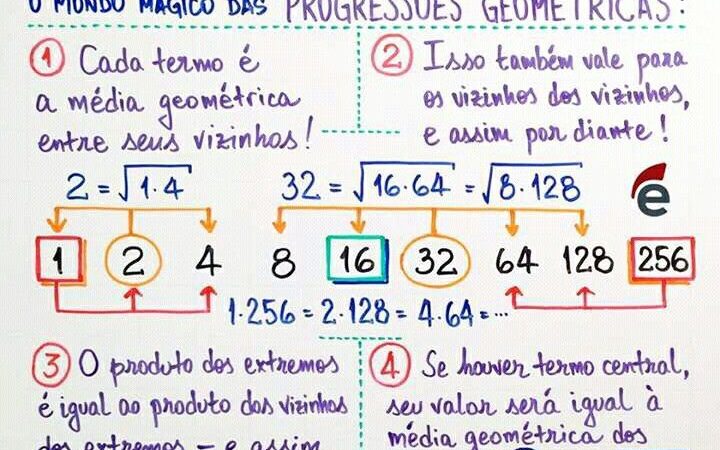 O MUNDO MÁGICO DAS PROGRESSÕES GEOMÉTRICAS!
1 Cada termo é
a média geométrica
entre seus vizinhos!
2 Isso também vale para
os vizinhos dos vizinhos,
e assim por diante!
2 = √1·4
32 = √16·64 = √8·128
e
1 2 4 8 16 32 64 128 256
1·256 = 2·128 = 4·64 = ...
3 O produto dos extremos
é igual ao produto dos vizinhos
dos extremos – e assim
4 Se houver termo central,
seu valor será igual à
média geométrica dos